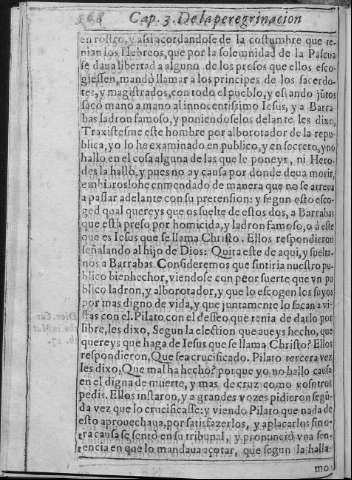 Cap. 3. De la peregrinacion
en rostro, y assi acordandose de la costumbre que te-
nian los Hebreos, que por la solemnidad de la Pascua
se daua libertad a alguno de los presos que ellos esco-
giessen, mandò llamar a los principes de los sacerdo-
tes, y magistrados, con todo el pueblo, y estando jũtos
sacò mano a mano al innocentissimo Iesus, y a Barra
bas ladron famoso, y poniendoselos delante les dixo,
Traxistesme este hombre por alborotador de la repu
blica, yo lo he examinado en publico, y en secreto, y no
hallo en el cosa alguna de las que le poneys, ni Hero
des la hallò, y pues no ay causa por donde deua morir,
embiroslohe enmendado de manera que no se atreua
a passar adelante con su pretension: y segun esto esco-
ged qual quereys que os suelte de estos dos, a Barrabas
que està preso por homicida, y ladron famoso, o a este
que es Iesus que se llama Christo. Ellos respondieron
señalando al hijo de Dios: Quita este de aqui, y suelta
nos a Barrabas. Consideremos que sintiria nuestro pu
blico bienhechor, viendose con peor suerte que vn pu
blico ladron, y alborotador, y que lo escogen los suyos
por mas digno de vida, y que juntamente lo sacan a vi-
stas con el. Pilato con el desseo que tenia de darlo por
libre, les dixo, Segun la election que aueys hecho, que
quereys que haga de Iesus que se llama Christo? Ellos
respondieron, Que sea crucificado. Pilato tercera vez
les dixo, Que mal ha hecho? porque yo no hallo causa
en el digna de muerte, y mas de cruz como vosotros
pedis. Ellos instaron, y a grandes vozes pidieron segũ-
da vez que lo crucificasse: y viendo Pilato que nada de
esto aprouechaua, por satisfazerlos, y aplacarlos sin o-
tra causa se sentò en su tribunal, y pronunciò vna sen-
tencia en que lo mandaua açotar, que segun la halla-
mo